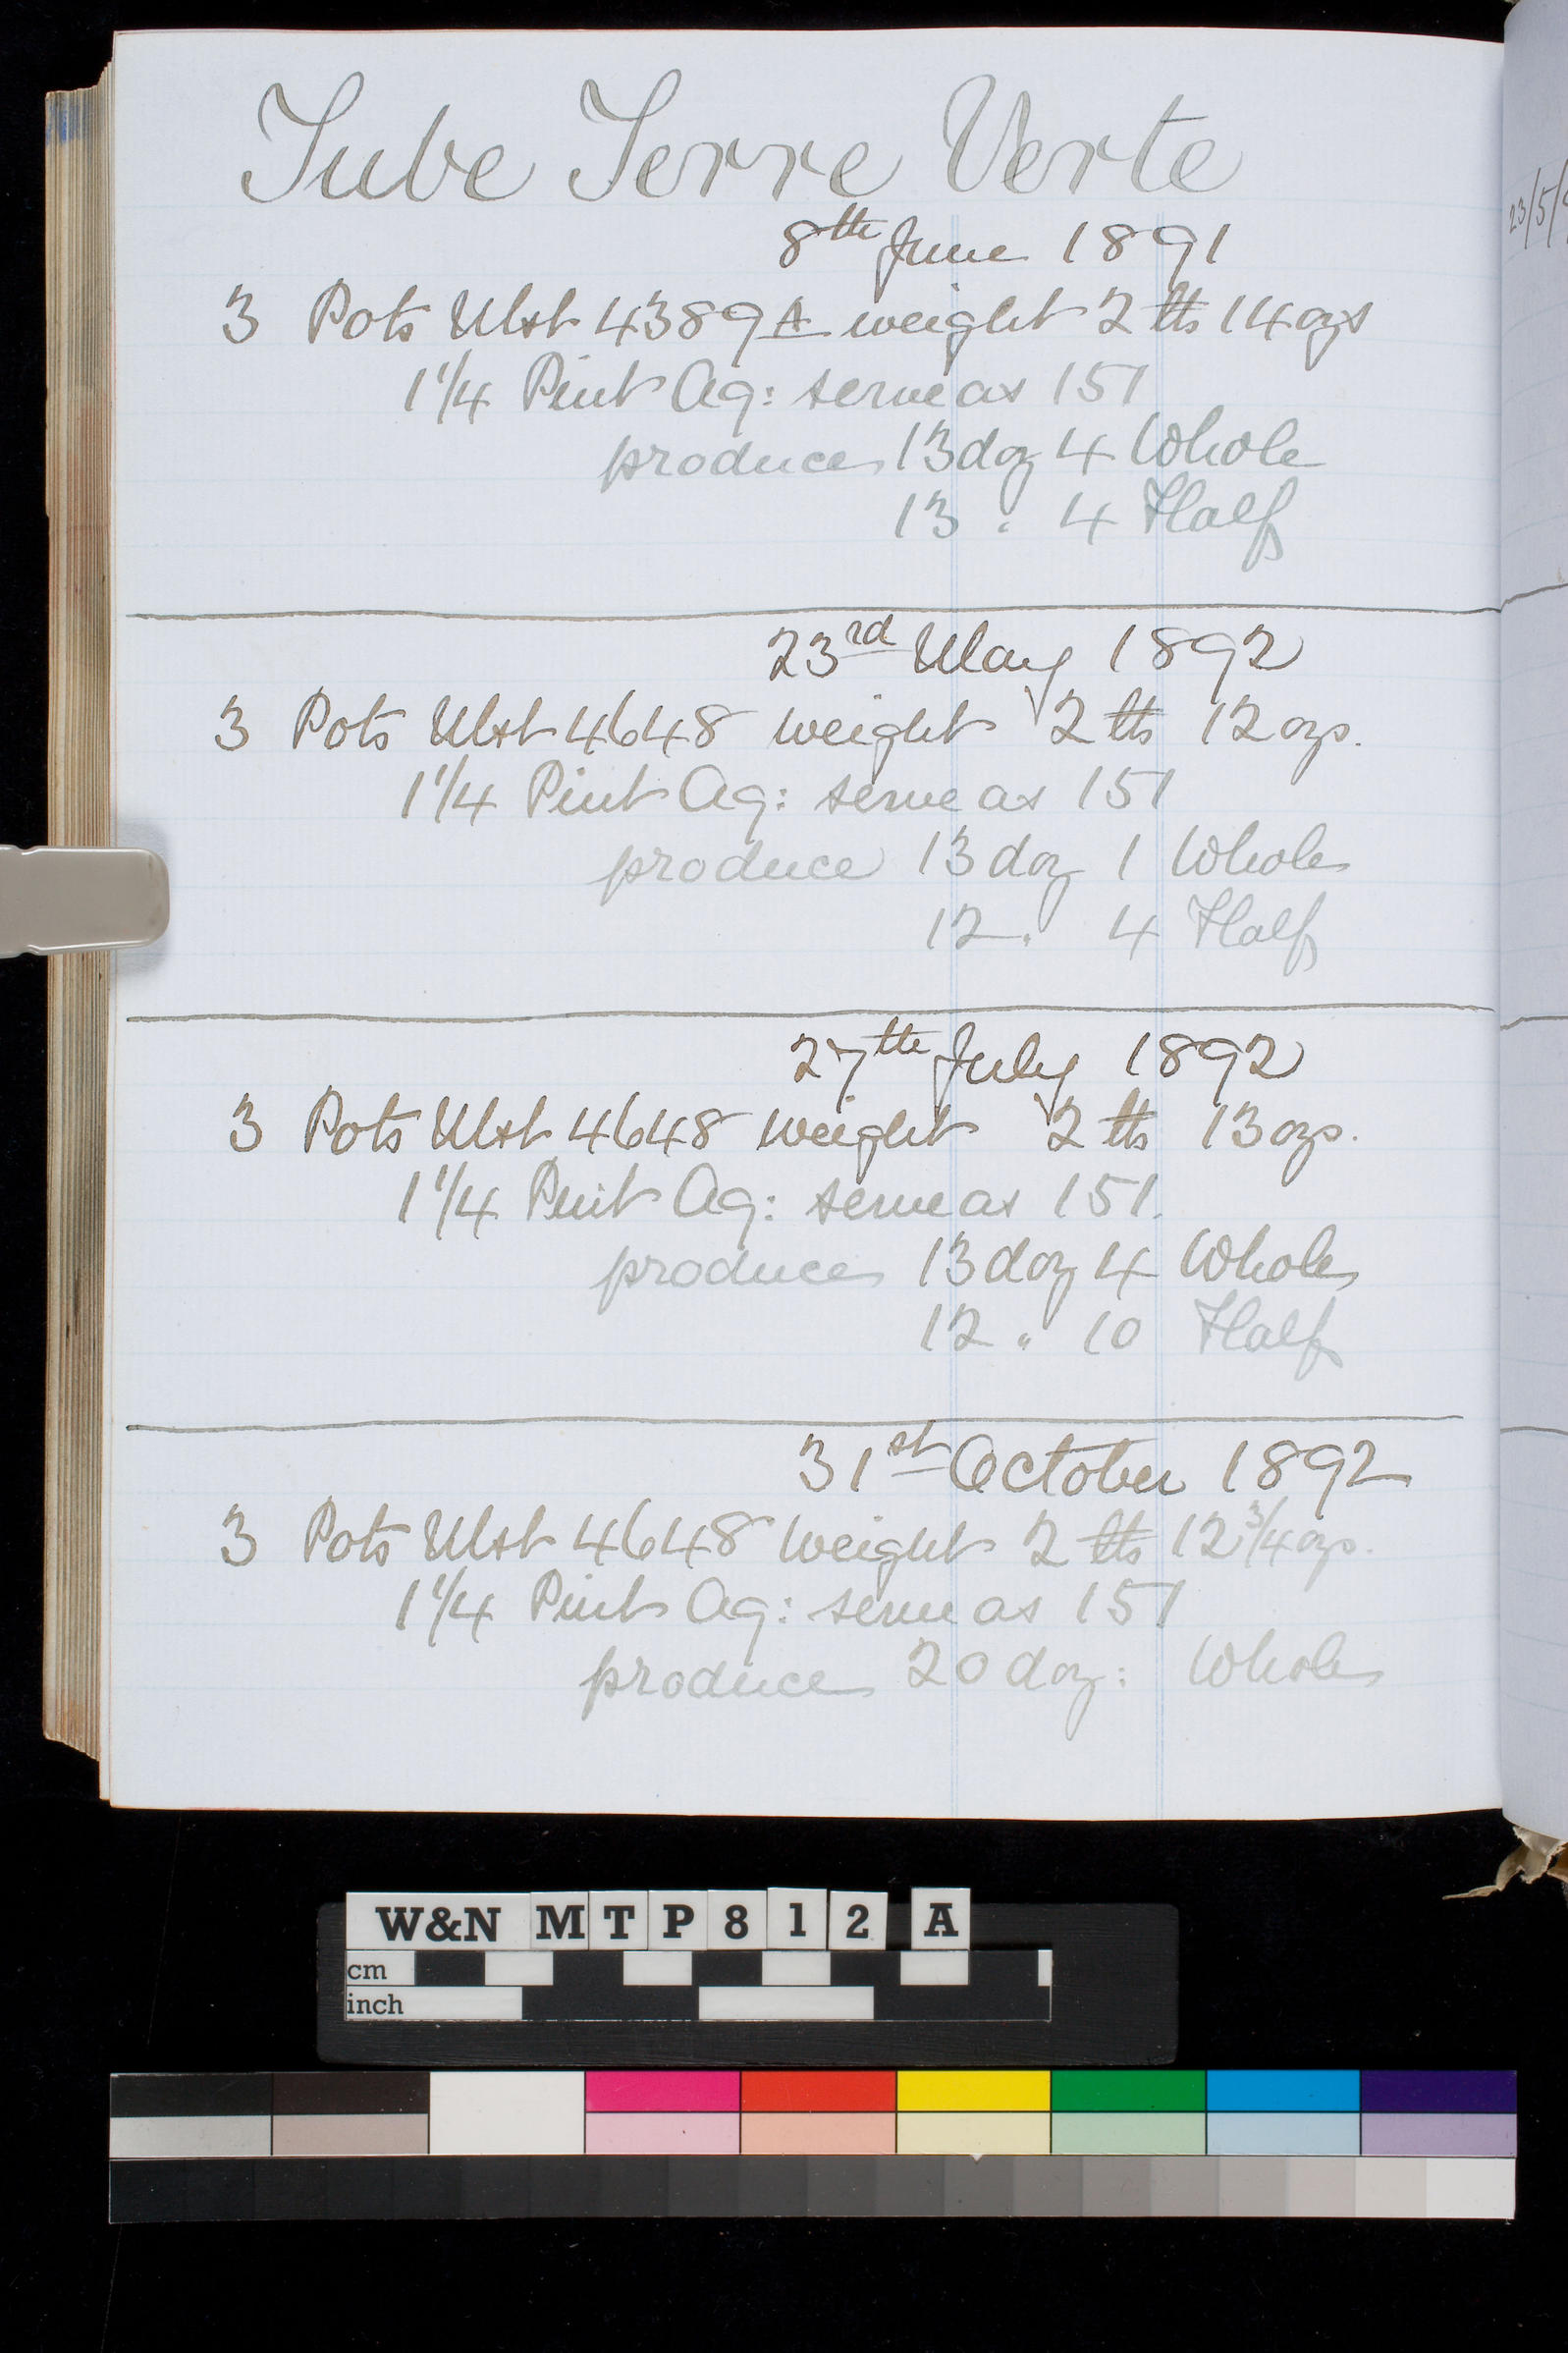 Tube Terre Verte
8th June 1891
3 Pots Mst 4389A weight 2 lbs 14 ozs
1 1/4 Pint Aq: serve as 151
produce 13 doz 4 Whole
13 " 4 Half
23rd May 1892
3 Pots Mst 4648 weight 2 lbs 12 ozs.
1 1/4 Pint Aq: serve as 151
produce 13 doz 1 Whole
12 " 4 Half
27th July 1892
3 Pots Mst 4648 weight 2 lbs 13 ozs.
1 1/4 Pint Aq: serve as 151.
produce 13 doz 4 Whole
12 " 10 Half
31st October 1892
3 Pots Mst 4648 weight 2 lbs 12 3/4 ozs.
1 1/4 Pint Aq: serve as 151
produce 20 doz: Whole
23/5/
W&N MTP812 A
cm
inch